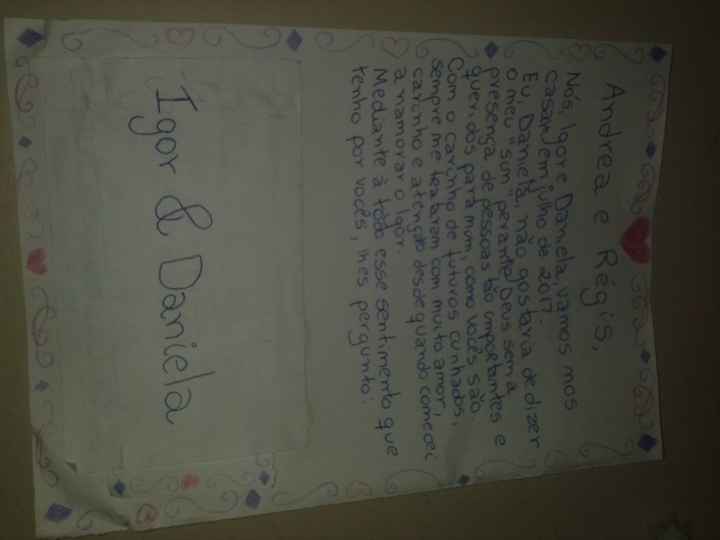 Andrea e Régis,
Nós, Igor e Daniela, vamos nos
casar em julho de 2017.
Eu, Daniela, não gostaria de dizer
o meu "sim" perante Deus sem a
presença de pessoas tão importantes e
queridos para mim, como vocês são.
Com o carinho de futuros cunhados,
sempre me trataram com muito amor,
carinho e atenção desde quando comecei
a namorar o Igor.
Mediante à todo esse sentimento que
tenho por vocês, lhes pergunto:
Igor & Daniela